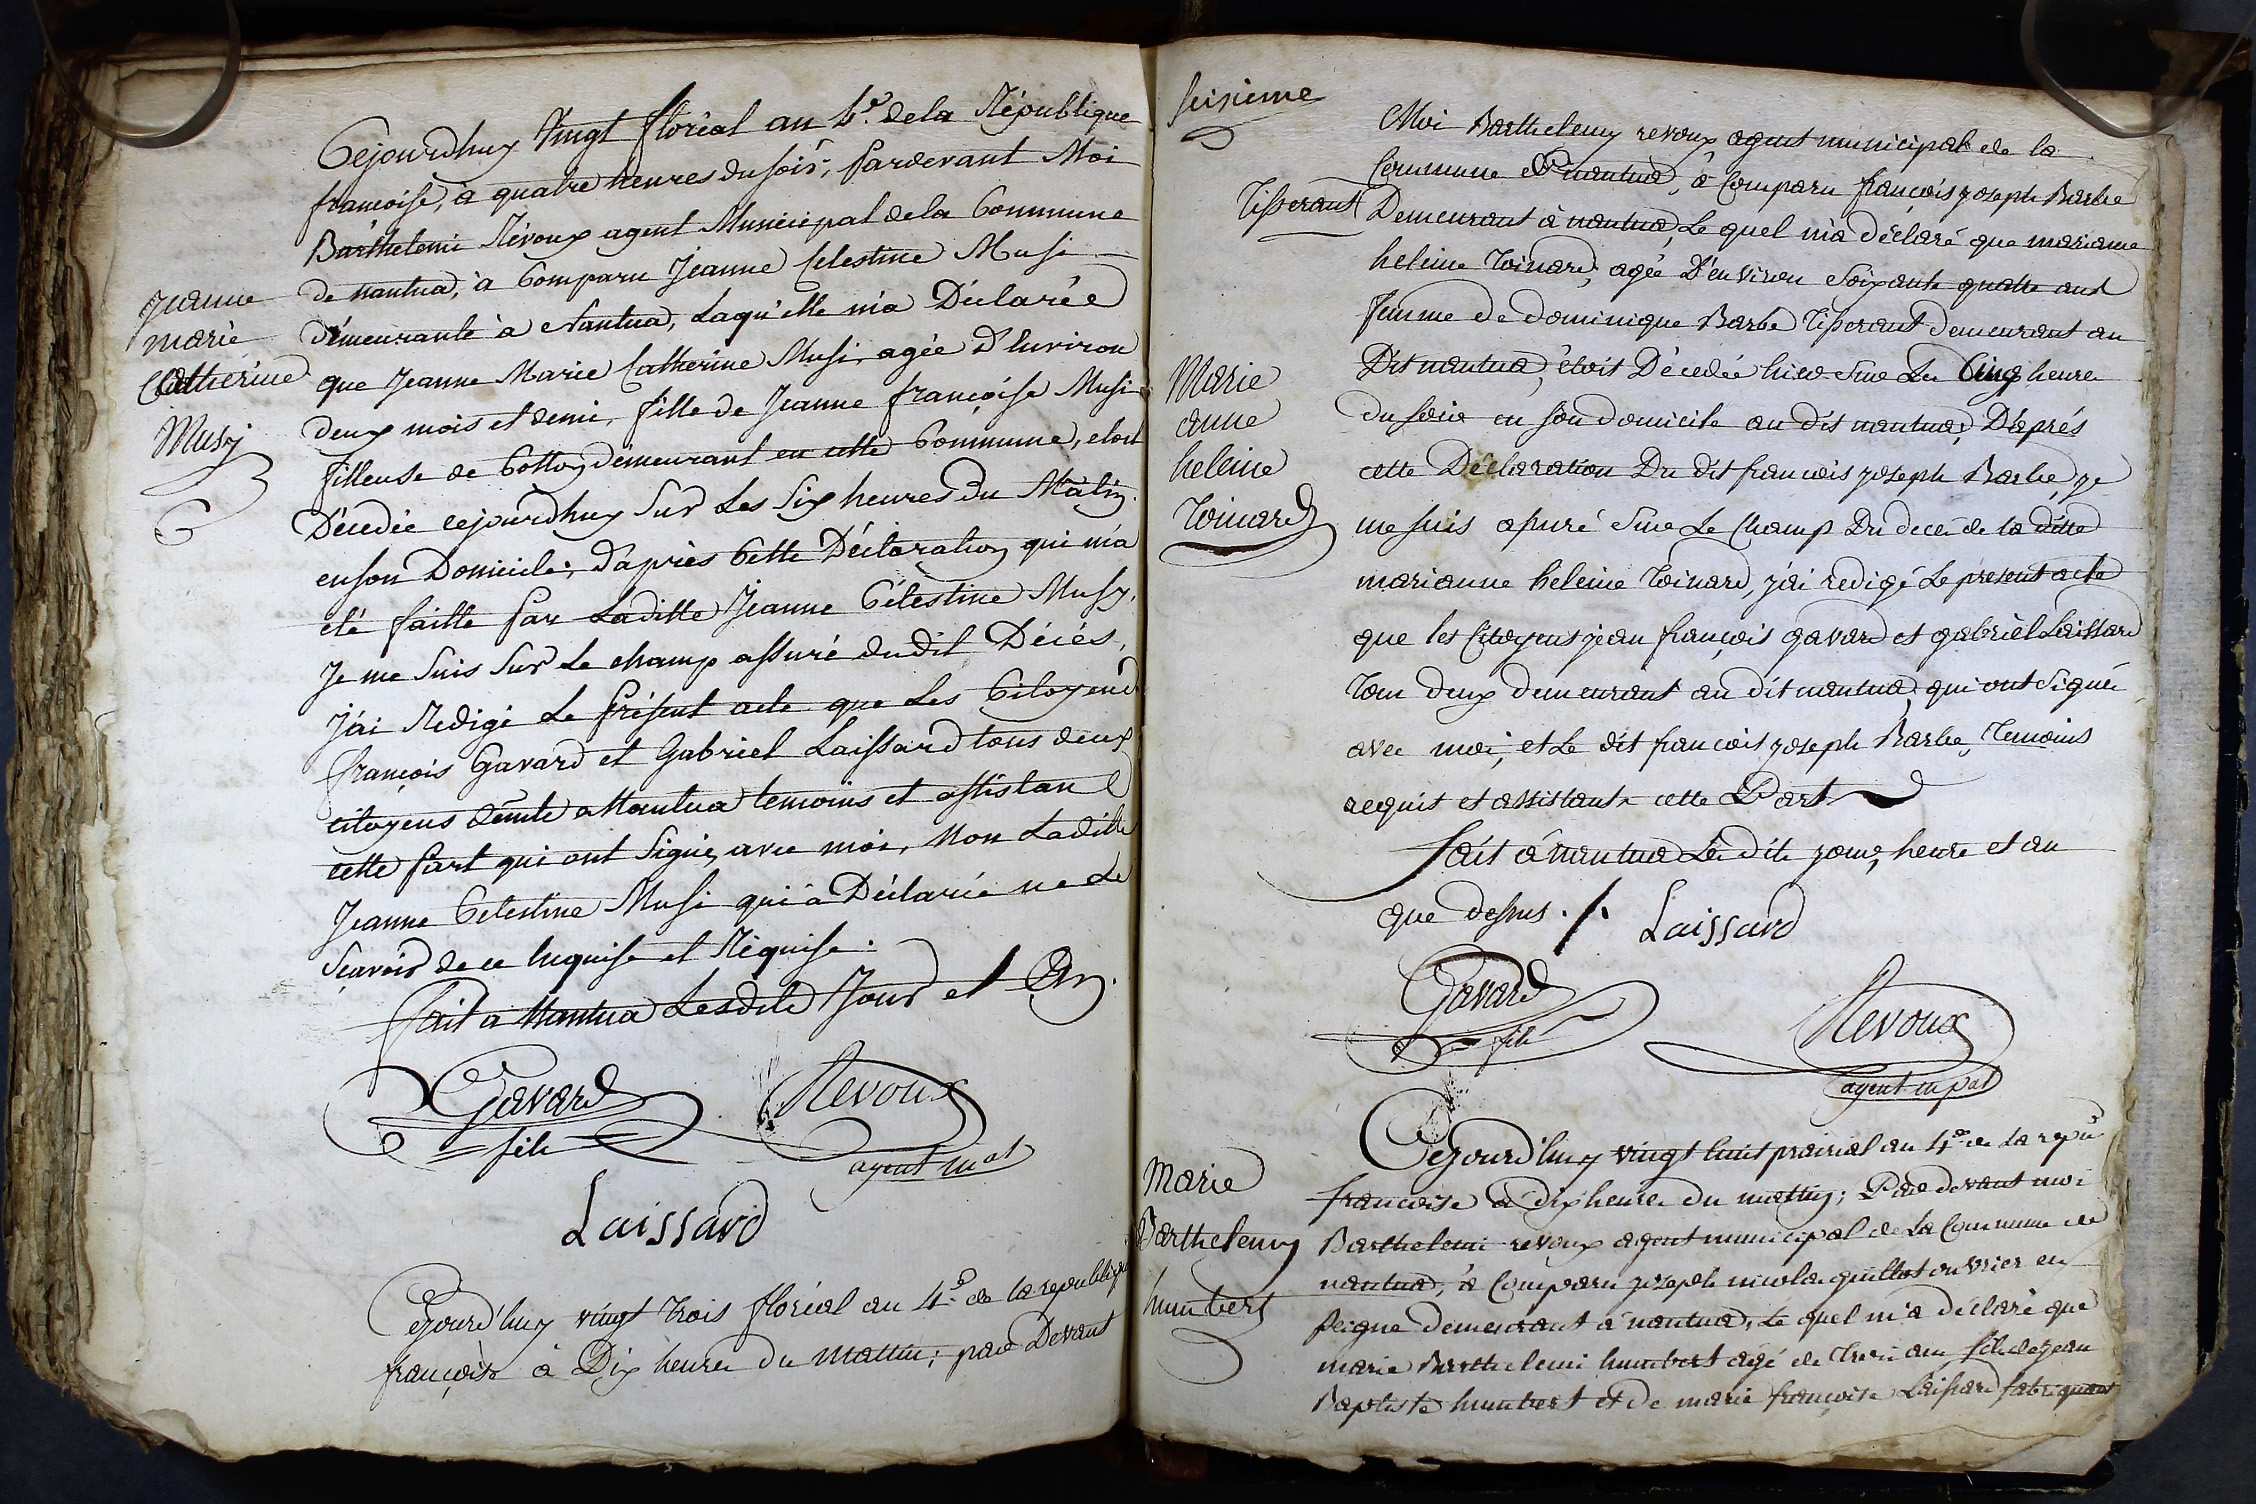 Cejourdhuy Vingt floréal an 4e. de la République
françoise, à quatre heures du soir, Pardevant Moi
Barthelemi Révoux agent Municipal de la Commune
de nantua, à Comparu Jeanne Celestine Musi
démeurante à Nantua, Laqu'elle m'a Déclarée
que Jeanne Marie Catherine Musi, agée D'Environ
deux mois et demi, fille de Jeanne françoise Musi
filleuse de Cotton demeurant en cette Commune, etoit
Décedée cejourdhuy Sur Les Six heures Du Matin
en son Domicile; D'après Cette Déclaration qui m'a
eté faitte Par Laditte Jeanne Célestine Musy,
Je me Suis Sur Le champ assuré dudit Décés,
J'ai Redigé Le Présent acte que Les Citoyens
françois Gavard et Gabriel Laissard tous deux
citoyens demts a Nantua temoins et assistan
cette Part qui ont Signé, avec moi, Non Laditte
Jeanne Celestine Musi qui à Déclarée ne Le
Sçavoir de ce Enquise et Réquise.
fait a Nantua Lesdits Jour et An.
Jeanne
marie
Catherine
Musy
Gavard
fils
Revoux
agent mal
Laissard
Cejourd'huy vingt trois floréal an 4e. de la republique
françoise à Dix heures du mattin; pard Devant
seisieme
Moi Barthelemy revoux agent municipal de la
Commune de nantua, à Comparu françois joseph Barbe
Tisserant Demeurant à nantua, Le quel m'a déclaré que mariane
heleine Toinard, agée D'environ Soixante quatre ans
femme de dominique Barbe Tisserant demeurant au
Dit nantua, étoit Décedée hier Sur Les Cinq heures
du soir en son domicile au dit nantua, D'aprés
cette Déclaration Du dit françois joseph Barbe, je
me suis apuré Sur Le Champ Du decé de la ditte
marianne heleine Toinard, j'ai redigé Le présent acte
que les Citoyens jean françois gavard et gabriel Laissard
Tous deux demeurant au dit nantua, qui ont Signé
avec moi, et Le dit françois joseph Barbe, Temoins
requis et assistants cette Part
fait à nantua Les dits jour, heure et an
que dessus ./.
Marie
anne
heleine
Toinard
Laissard
Gavard
fils
Revoux
agent mpal
Cejourd'huy vingt huit prairial an 4e. de la repu
françoise à dix heures du mattin; Par devant moi
Barthelemi revoux agent municipal de La Commune de
nantua, à Comparu joseph nicolas guillot ouvrier en
Peigne demeurant à nantua, Le quel m'a déclaré que
marie Barthelemi humbert agé de Trois ans fils de jean
Baptiste humbert et de marie françoise Laissard fabriquant
Marie
Barthelemy
humbert